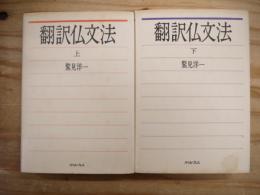 翻訳仏文法
上
鷲見洋一
翻訳仏文法
下
鷲見洋一